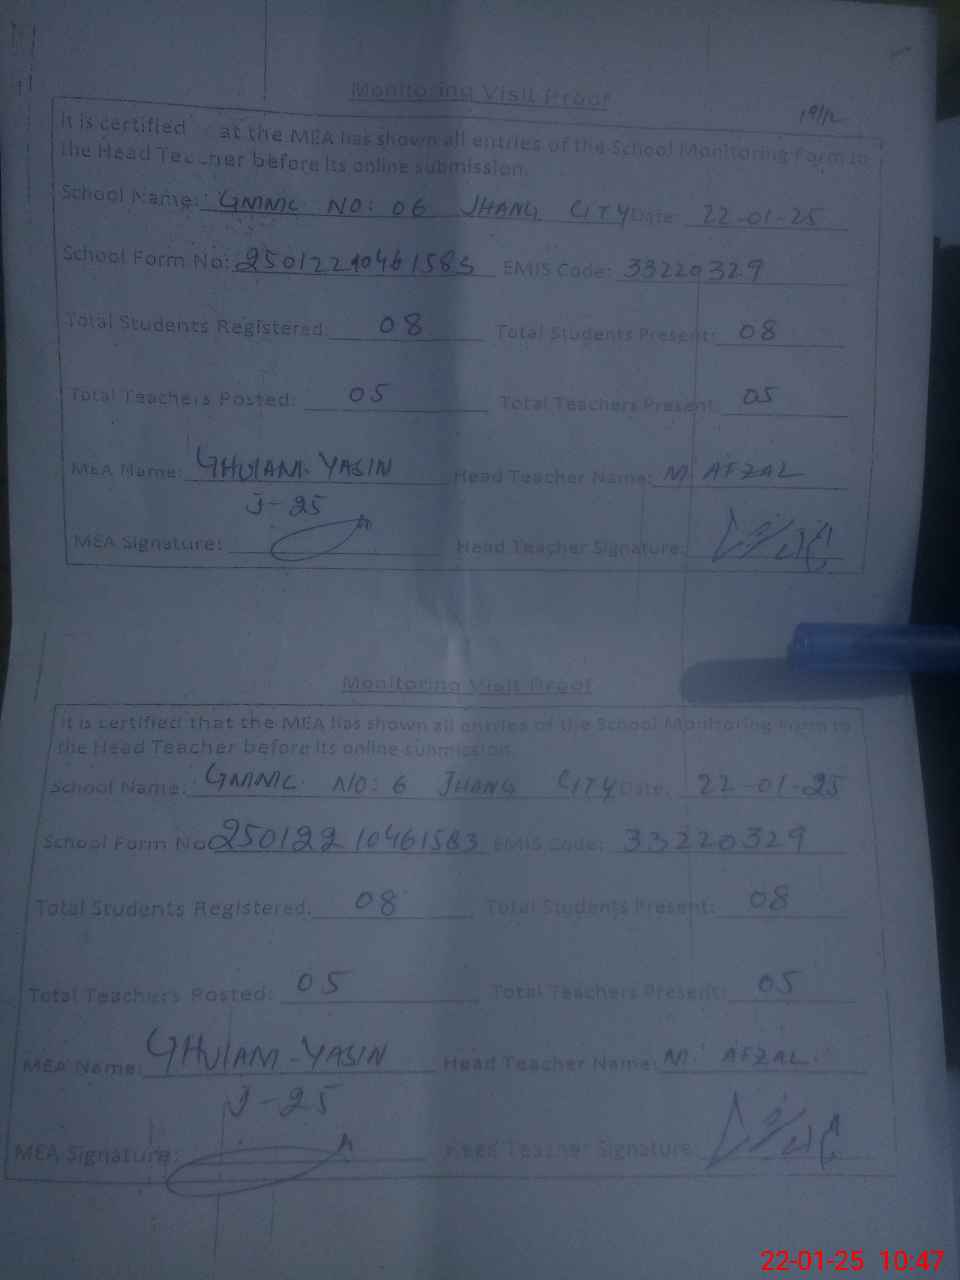 Monitoring Visit Proof
It is certified at the MEA has shown all entries of the School Monitoring Form to
the Head Teacher before its online submission.
School Name: GMMC NO: 06 JHANG CITY Date: 22-01-25
School Form No: 25012210461583 EMIS Code: 33220329
Total Students Registered 08 Total Students Present: 08
Total Teachers Posted: 05 Total Teachers Present: 05
MEA Name: GHULAM YASIN Head Teacher Name: M. AFZAL
J-25
MEA Signature: Head Teacher Signature:
Monitoring Visit Proof
It is certified that the MEA has shown all entries of the School Monitoring Form to
the Head Teacher before its online submission.
School Name: GMMC NO: 6 JHANG CITY Date: 22-01-25
School Form No 25012210461583 EMIS Code: 33220329
Total Students Registered: 08 Total Students Present: 08
Total Teachers Posted: 05 Total Teachers Present: 05
MEA Name: GHULAM-YASIN Head Teacher Name: M. AFZAL
J-25
MEA Signature: Head Teacher Signature:
22-01-25 10:47